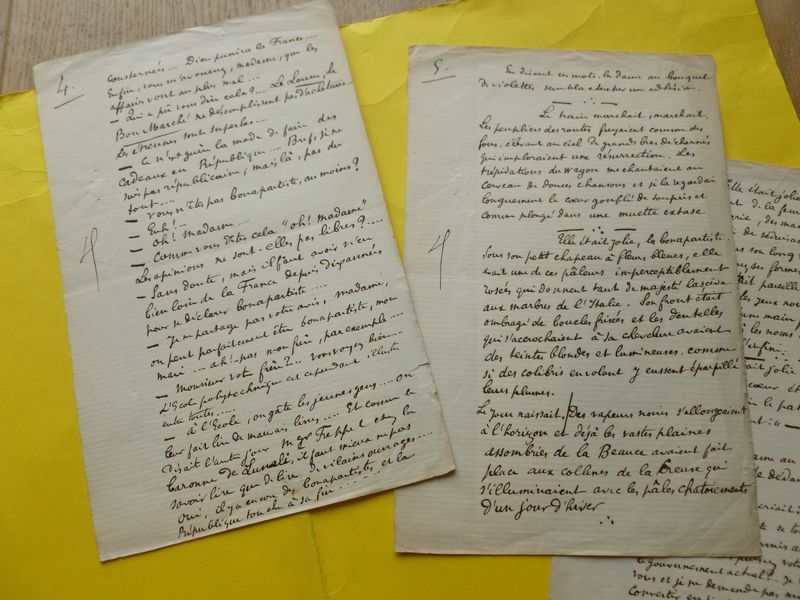 4.
consternés... Dieu punira la France....
Enfin, vous m'avouerez, madame, que les
affaires vont au plus mal...
— Qui a pu vous dire cela?.... Le Louvre, le
Bon Marché ne désemplissent pas d'acheteurs
les étrennes sont superbes....
— Ce n'est guère la mode de faire des
cadeaux en République.... Bref, je ne
suis pas républicaine; mais là, pas du
tout....
— Vous n'êtes pas bonapartiste, au moins?
— Euh!...
— Oh! madame....
— Comme vous dites cela "oh! madame"
Les opinions ne sont-elles pas libres?....
— Sans doute, mais il faut avoir vécu
bien loin de la France depuis dix années
pour se déclarer bonapartiste....
— Je ne partage pas votre avis, madame,
on peut parfaitement être bonapartiste, mon
mari... ah! pas mon frère, par exemple...
— Monsieur votre frère?... vous voyez bien....
L'Ecole polytechnique est cependant illustre
entre toutes.....
— à l'Ecole, on gâte les jeunes gens.... On
leur fait lire de mauvais livres.... Et comme le
disait l'autre jour Mgr Freppel chez la
baronne de, il faut mieux ne pas
savoir lire que de lire de vilains ouvrages....
Oui, il y a encore des bonapartistes et la
République touche à sa fin....
5.
En disant ces mots, la dame au bouquet
de violettes, sembla chercher une adhésion.
Le train marchait, marchait.
Les peupliers des routes fuyaient comme des
fous, élevant au ciel de grands bras décharnés
qui imploraient une résurrection. Les
trépidations du wagon me chantaient au
cerveau de douces chansons et je la regardai
longuement le cœur gonflé de soupirs et
comme plongé dans une muette extase
Elle était jolie, la bonapartiste.
Sous son petit chapeau à fleurs bleues, elle
avait une de ces pâleurs imperceptiblement
rosées qui donnent tant de majesté lascive
aux marbres de l'Italie. Son front était
ombragé de boucles frisées et les dentelles
qui s'accrochaient à sa chevelure avaient
des teintes blondes et lumineuses comme
si des colibris en volant y eussent éparpillé
leurs plumes.
Le jour naissait. Des vapeurs noires s'allongeaient
à l'horizon et déjà les vastes plaines
assombries de la Beauce avaient fait
place aux collines de la Creuse qui
s'illuminaient avec les pâles chatoiements
d'un jour d'hiver
Elle était jolie
de la femme
des ma
de séduis
son long
ses forme
était pareille
les yeux noi
main
à les noms
enfin
était jolie
cœur ét
le pa
au
de déda
criait
se to
le gouvernement actuel? Je
vous et je ne demande pas mi
convertir en